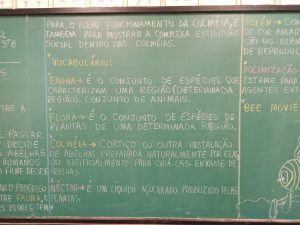 PARA O PLENO FUNCIONAMENTO DA COLMÉIA, E
TAMBÉM PARA MOSTRAR A COMPLEXA ESTRUTURA
SOCIAL DENTRO DAS COLMÉIAS.
VOCABULÁRIO:
FAUNA → É O CONJUNTO DE ESPÉCIES QUE
CARACTERIZAM UMA REGIÃO (DETERMINADA
REGIÃO). CONJUNTO DE ANIMAIS.
FLORA → É O CONJUNTO DE ESPÉCIES DE
PLANTAS DE UMA DETERMINADA REGIÃO.
COLMEIA → CORTIÇO OU OUTRA INSTALAÇÃO
DE ABELHAS PREPARADA NATURALMENTE POR ELAS
OU ARTIFICIALMENTE PARA CRIÁ-LAS, ENXAME DE
ABELHAS.
NÉCTAR → É UM LÍQUIDO AÇUCARADO PRODUZIDO PELAS
PLANTAS.
02
3ºB
TRE A
PASSAR
DECIDE
ABELHAS
HUMANOS
FILME DECIDE
PROCESSO
NTRE FAUNA E
FLORES TÊM
PÓLEN →
DE COR AMAR
SÃO OS ELEM
DE REPRODUÇ
POLINIZAÇÃO
ESTAME PARA
AGENTES EXT
BEE MOVIE